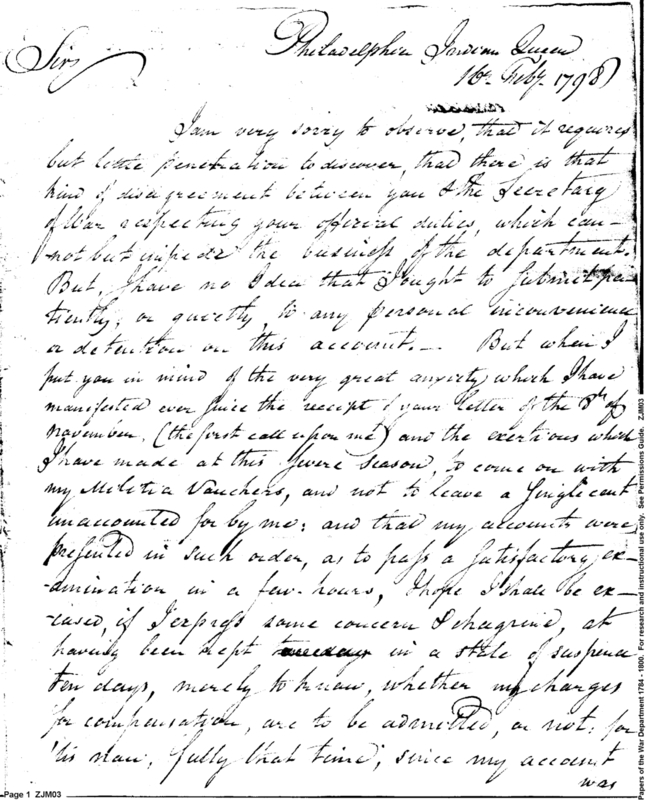 Philadelphia Indian Queen
Sir,
16th Feby. 1798
I am very sorry to observe, that it requires
but little penetration to discover, that there is that
kind of disagreement between you & the Secretary
of War respecting your official duties, which can-
not but impede the business of the department.
But, I have no Idea that I ought to submit pa-
tiently, or quietly, to any personal inconvenience
or detention on this account. — But when I
put you in mind of the very great anxiety which I have
manifested ever since the receipt of your letter of the 8th of
november. (the first call upon me) and the exertions which
I have made at this severe season, to come on with
my Militia Vouchers, and not to leave a single cent
unaccounted for by me; and that my accounts were
presented in such order, as to pass a satisfactory ex-
-amination in a few hours, I hope I shall be ex-
-cused, if I express some concern & chagrine, at
having been kept in a state of suspence
ten days, merely to know, whether my charges
for compensation, are to be admitted, or not: for
'tis now, fully that time, since my account
was
Page 1 ZJM03
Papers of the War Department 1784 - 1800. For research and instructional use only. See Permissions Guide. ZJM03